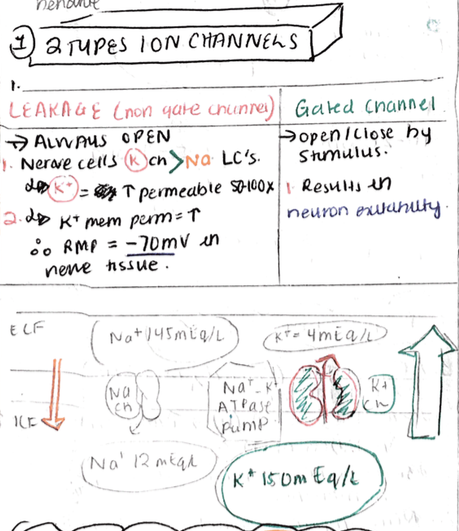 ① 2 TYPES ION CHANNELS
1.
LEAKAGE (non gate channel)
→ ALWAYS OPEN
1. Nerve cells K ch > Na LC's.
K+ = ↑ permeable 50-100x
2. K+ mem perm = ↑
∴ RMP = -70mV in
nerve tissue.
Gated Channel
→ open/close by
stimulus.
1. Results in
neuron excitability.
ECF
Na+ 145mEq/L
K+ = 4mEq/L
Na
ch
Na+-K+
ATPase
pump
K+
ch
ICF
Na+ 12mEq/L
K+ 150mEq/L